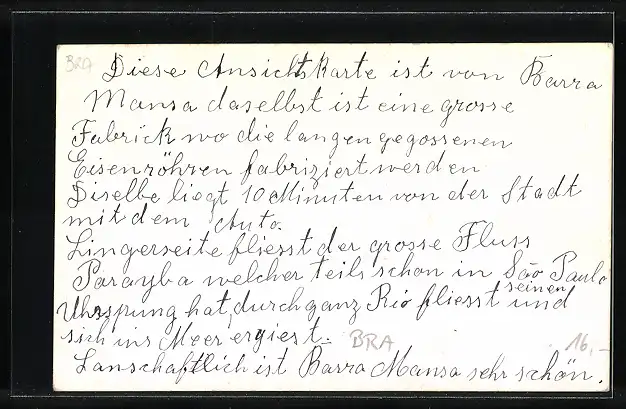 BRA
Diese Ansichtskarte ist von Barra
Mansa daselbst ist eine grosse
Fabrick wo die langen gegossenen
Eisenröhren fabriziert werden
Diselbe liegt 10 Minuten von der Stadt
mit dem Auto.
Lingerseite fliesst der grosse Fluss
Parayba welcher teils schon in São Paulo
seinen
Uhrspung hat, durch ganz Rio fliesst und
sich ins Meer ergiest.
BRA 16,-
Lanschaftlich ist Barra Mansa sehr schön.